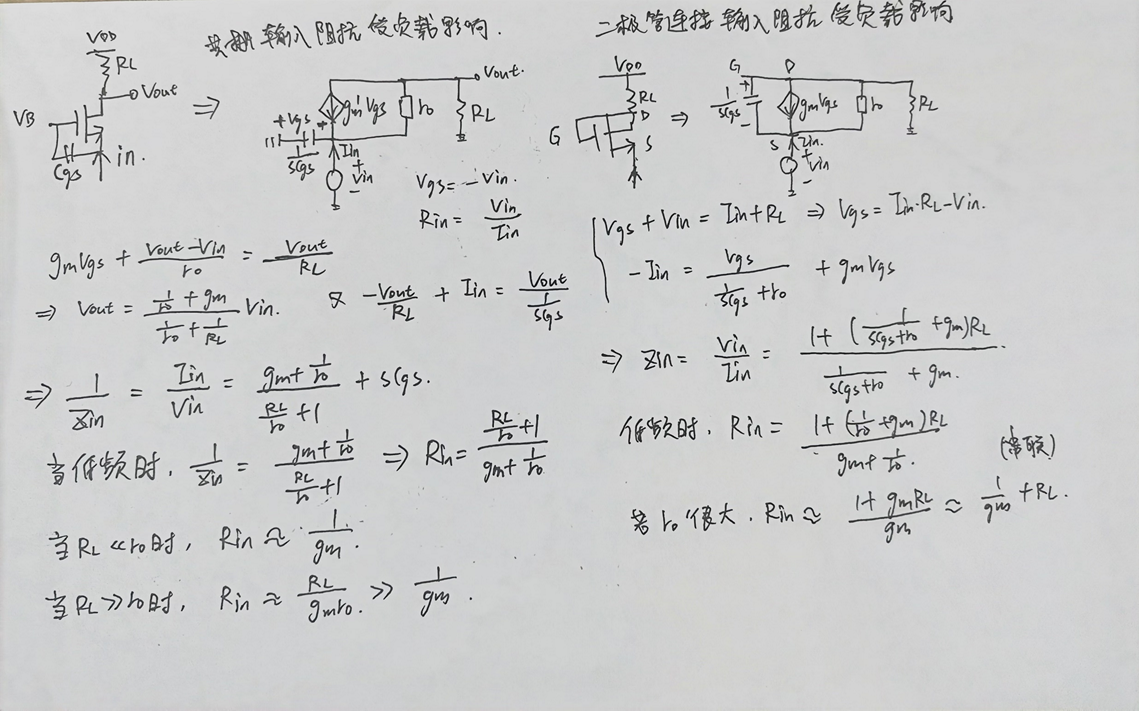 共栅输入阻抗受负载影响.
VDD
RL
Vout
VB
Cgs
in.
⇒
Vout.
gmVgs
ro
RL
+ Vgs -
1/sCgs
Iin
+
Vin
-
Vgs = -Vin.
Rin = Vin/Iin
gmVgs + (Vout-Vin)/ro = Vout/RL
⇒ Vout = (1/ro + gm)/(1/ro + 1/RL) Vin. 又 -Vout/RL + Iin = Vout/(1/sCgs)
⇒ 1/Zin = Iin/Vin = (gm + 1/ro)/(RL/ro + 1) + sCgs.
当低频时, 1/Zin = (gm + 1/ro)/(RL/ro + 1) ⇒ Rin = (RL/ro + 1)/(gm + 1/ro)
当RL ≪ ro时, Rin ≈ 1/gm.
当RL ≫ ro时, Rin ≈ RL/(gmro) ≫ 1/gm.
二极管连接输入阻抗受负载影响
VDD
RL
D
G
S
⇒
G
D
1/sCgs
+
-
gmVgs
ro
RL
S
Iin.
+
Vin
-
Vgs + Vin = Iin + RL ⇒ Vgs = Iin·RL - Vin.
-Iin = Vgs/(1/sCgs + ro) + gmVgs
⇒ Zin = Vin/Iin = (1 + (1/(sCgs+ro) + gm)RL)/(1/(sCgs+ro) + gm.)
低频时, Rin = (1 + (1/ro + gm)RL)/(gm + 1/ro.)
若ro很大, Rin ≈ (1 + gmRL)/gm ≈ 1/gm + RL.
(串联)